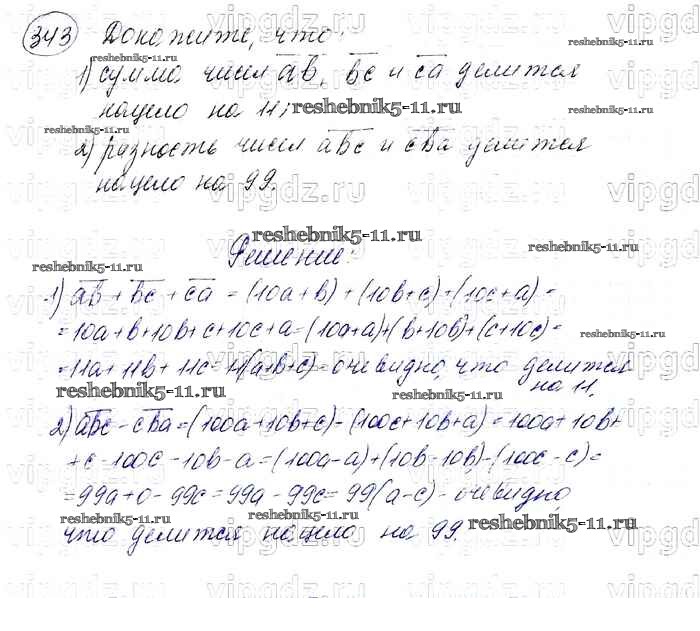 343 Докажите, что:
1) сумма чисел a̅b̅, b̅c̅ и c̅a̅ делится
нацело на 11;
2) разность чисел a̅b̅c̅ и c̅b̅a̅ делится
нацело на 99.
Решение:
1) a̅b̅ + b̅c̅ + c̅a̅ = (10a+b)+(10b+c)+(10c+a)=
=10a+b+10b+c+10c+a=(10a+a)+(b+10b)+(c+10c)=
=11a+11b+11c=11(a+b+c)-очевидно, что делится
на 11.
2) a̅b̅c̅ - c̅b̅a̅ =(100a+10b+c)-(100c+10b+a)=100a+10b+
+c-100c-10b-a=(100a-a)+(10b-10b)-(100c-c)=
=99a+0-99c=99a-99c=99(a-c)-очевидно,
что делится нацело на 99.
reshebnik5-11.ru
vipgdz.ru